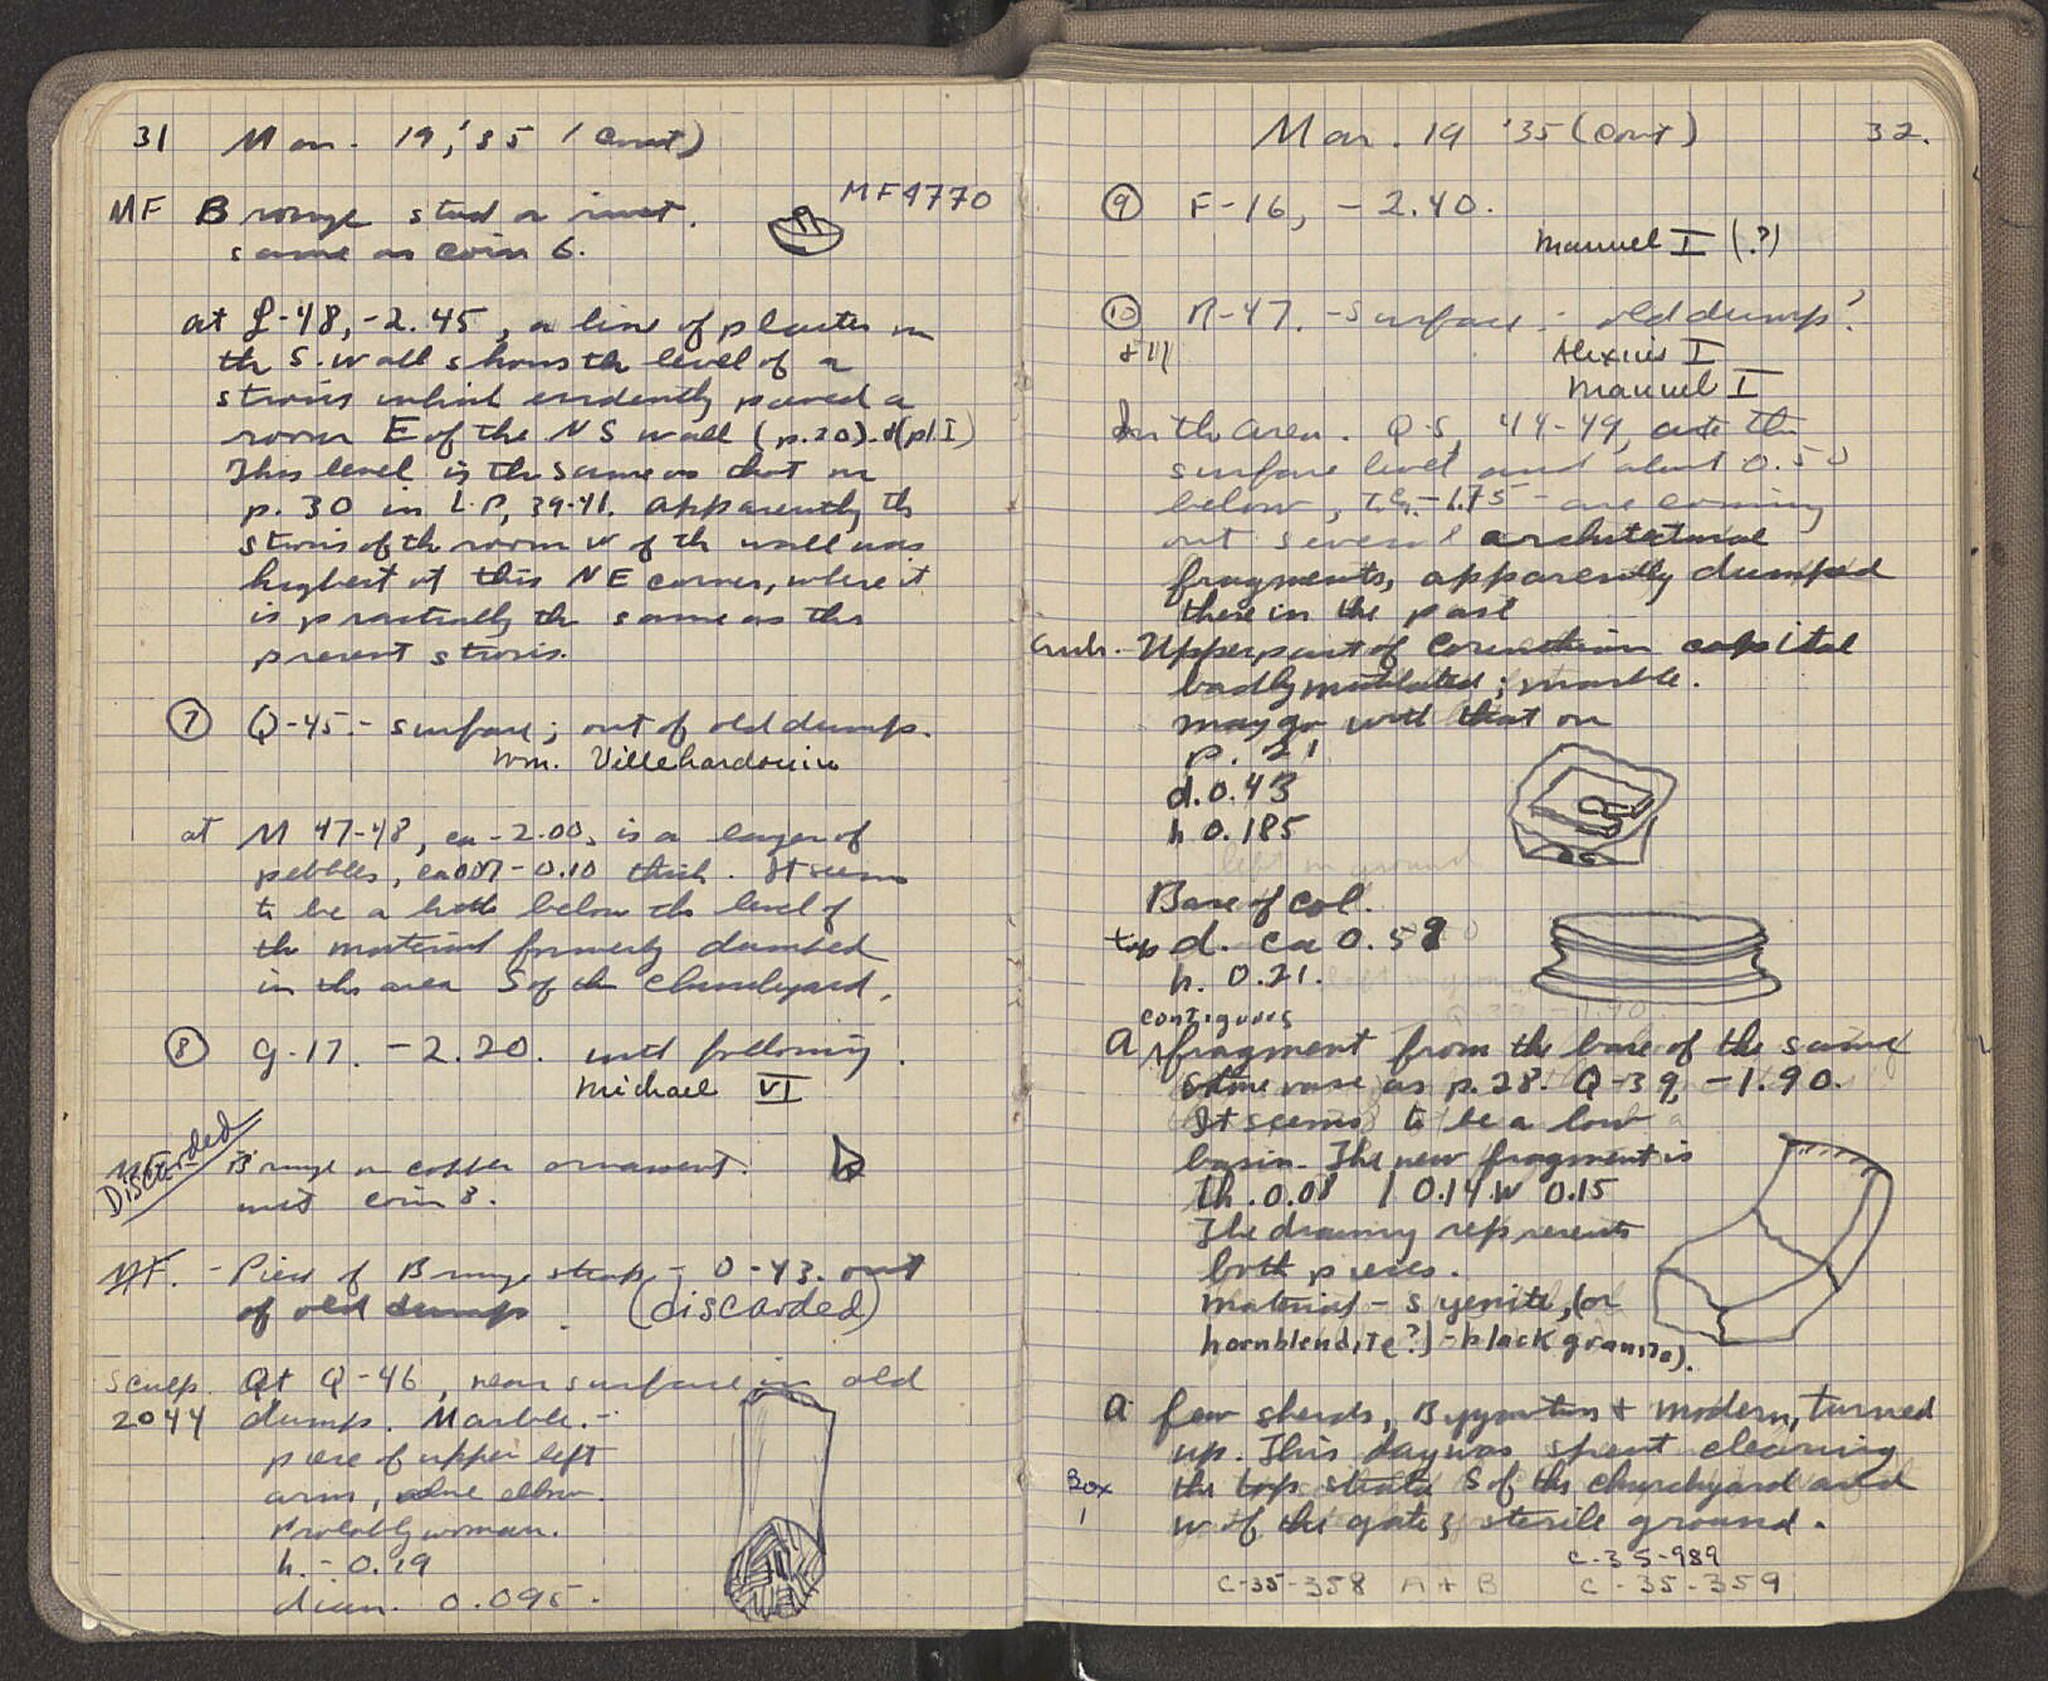 31 Mar. 19, '35 (Cont)
MF Bronze stud or rivet. MF4770
same as coin 6.
at L-48, -2.45, a line of plaster on
the S. wall shows the level of a
strosis which evidently paved a
room E of the NS wall (p.20). & (pl. I)
This level is the same as that on
p. 30 in L-P, 39-41. Apparently the
strosis of the room W of the wall was
highest at this NE corner, where it
is practically the same as the
present strosis.
7 Q-45 - surface; out of old dump.
Wm. Villehardouin
at M 47-48, ca -2.00, is a layer of
pebbles, ca 0.07-0.10 thick. It seems
to be a little below the level of
the material formerly dumped
in the area S of the churchyard.
8 G-17. -2.20. with following.
Michael VI
MF Discarded
Bronze or copper ornament.
with coin 8.
MF. - Piece of Bronze strap - O-43. out
of old dump. (discarded)
Sculp. At Q-46, near surface in old
2044 dump. Marble. -
piece of upper left
arm, above elbow.
Probably woman.
h. - 0.19
diam. 0.095.
Mar. 19 '35 (Cont) 32.
9 F-16, -2.40.
Manuel I (?)
10 R-47. - Surface - old dump?
& 11 Alexius I
Manuel I
In the area Q-S, 44-49, at the
surface level and about 0.50
below, i.e. -1.75 - are coming
out several architectural
fragments, apparently dumped
there in the past
Arch. - Upper part of Corinthian capital
badly mutilated; marble.
may go with that on
p. 21
d. 0.43
h 0.185
left in ground
Base of col.
top d. ca 0.59
h. 0.21.
contiguous
A fragment from the base of the same
stone vase as p. 28. Q-39, -1.90.
It seems to be a low
basin. The new fragment is
th. 0.08 l 0.14 w 0.15
The drawing represents
both pieces.
Material - syenite, (or
hornblendite?) - black granite).
A few sherds, Byzantine & modern, turned
up. This day was spent clearing
Box the top strata S of the churchyard and
1 W of the gate; sterile ground.
C-35-989
C-35-358 A + B C-35-359